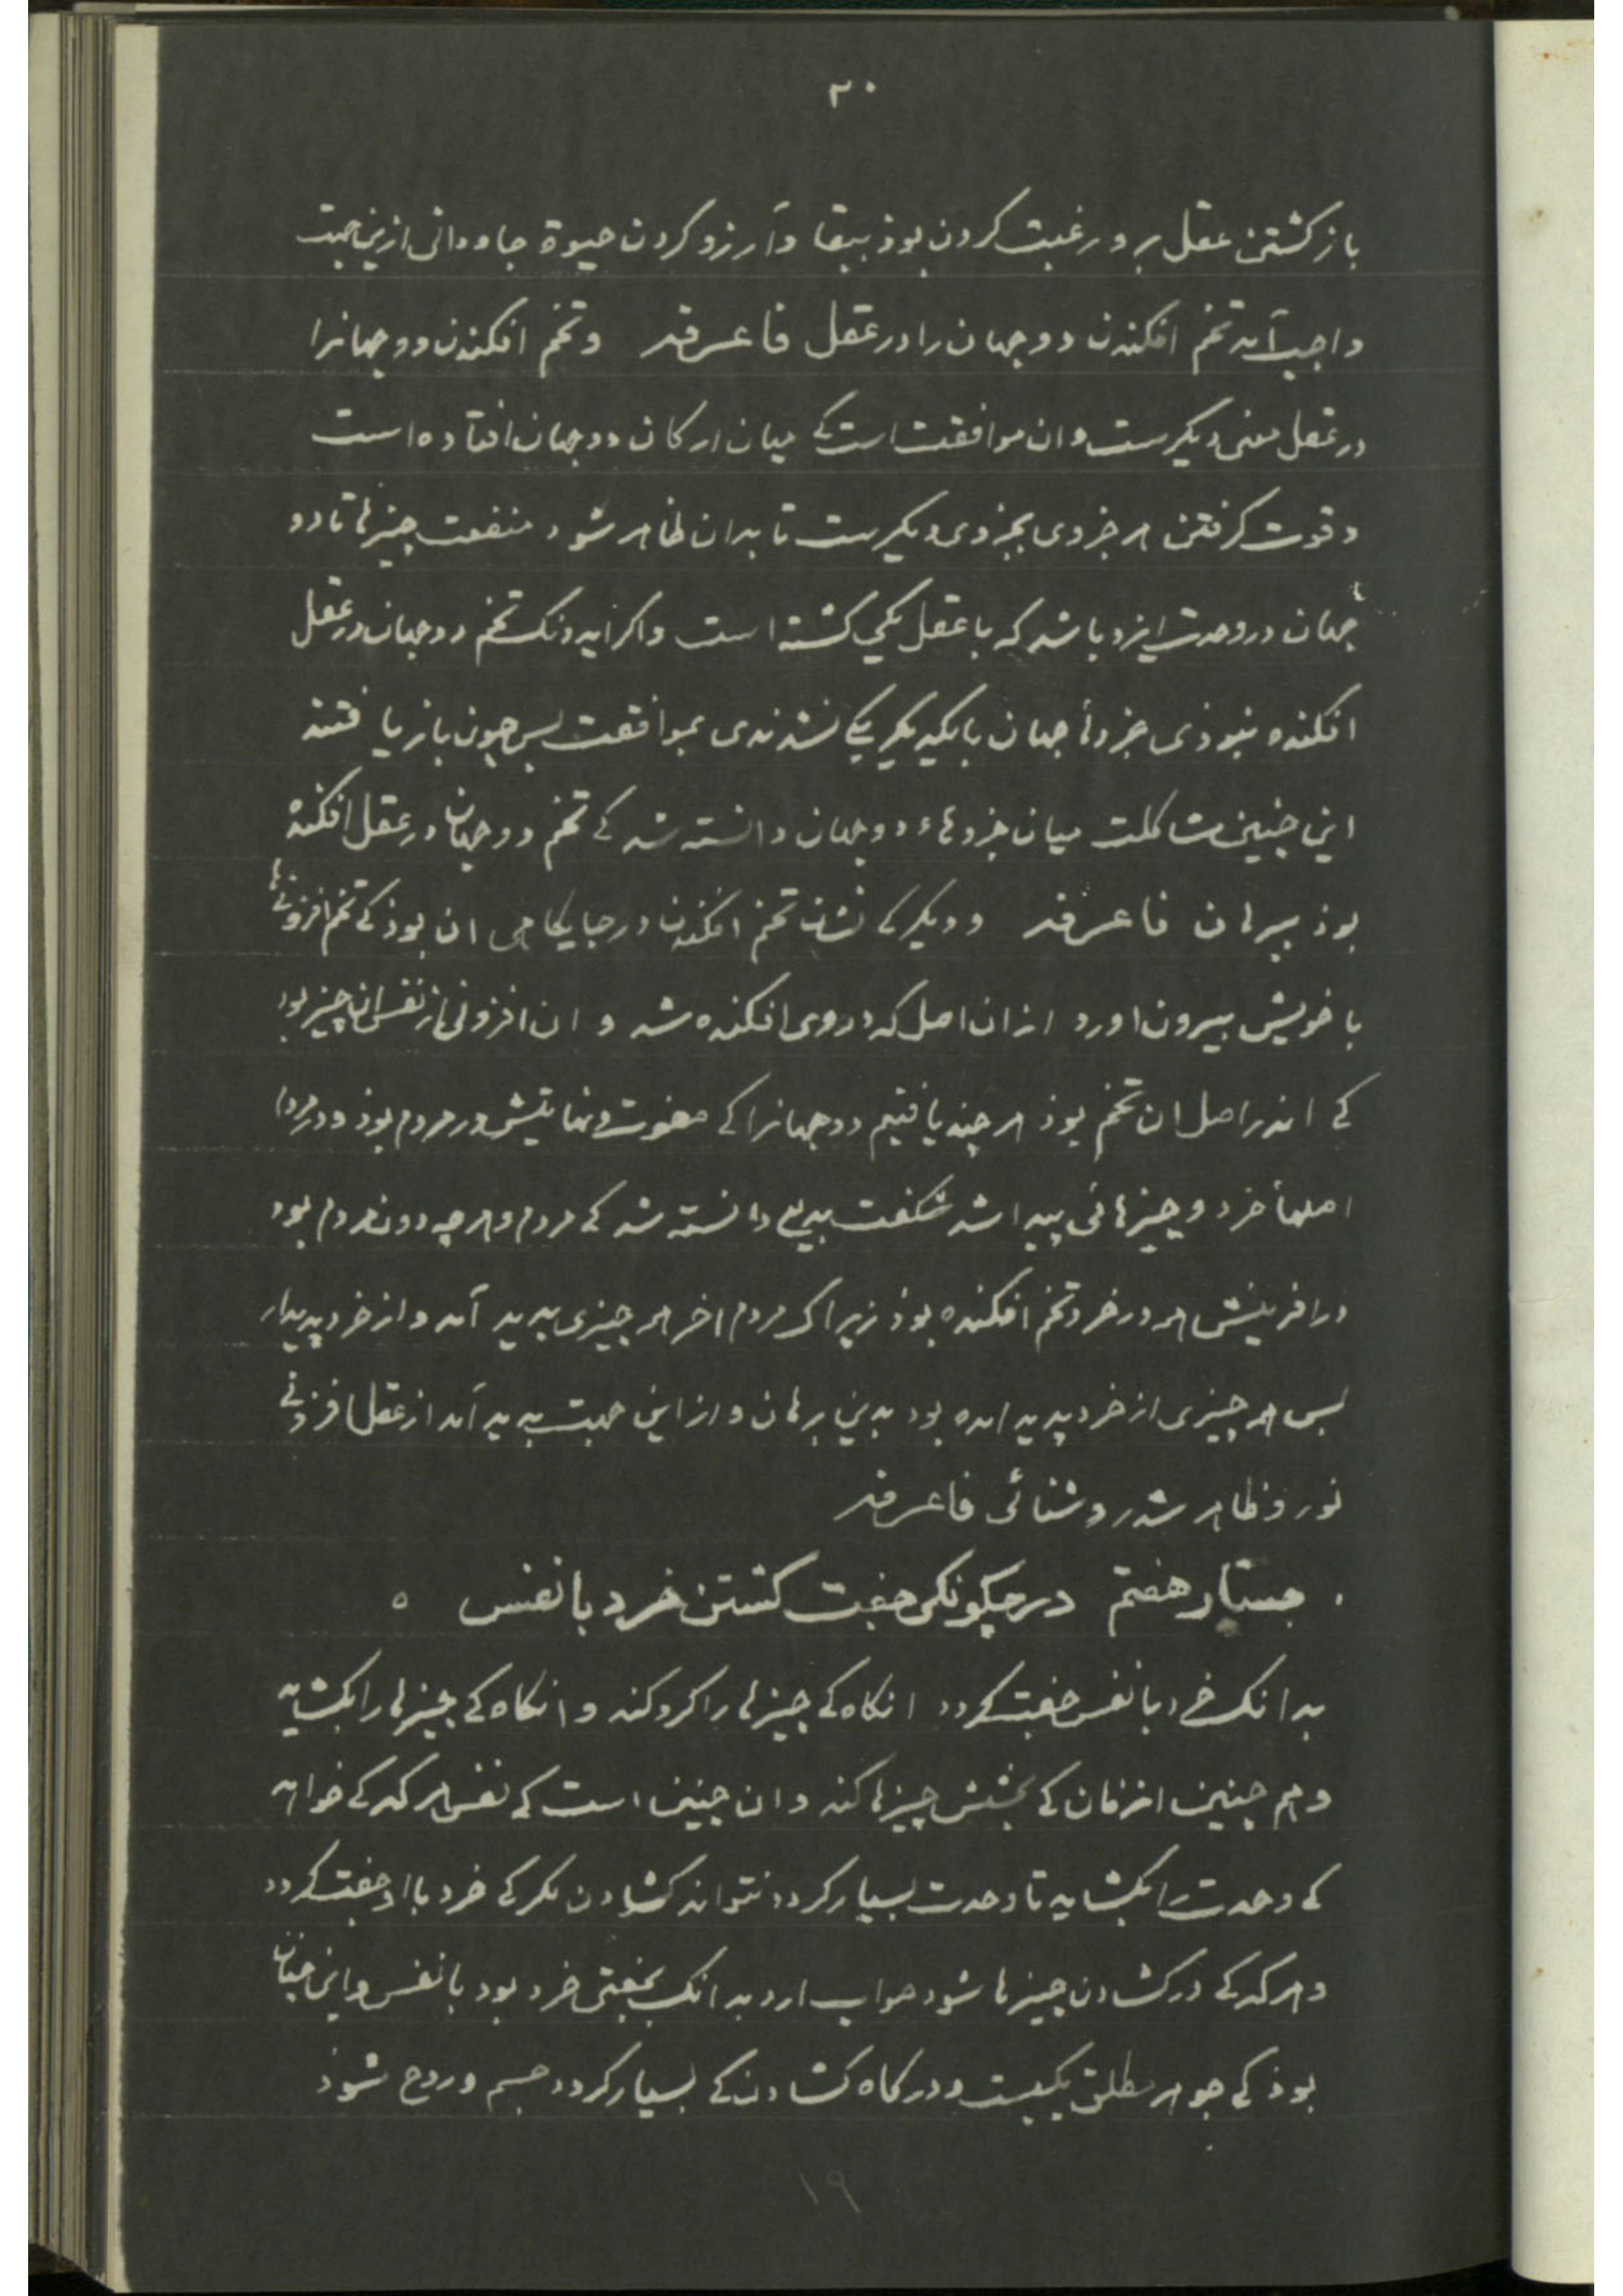 ۲۰
بازکشتن عقل برو رغبت کردن بوذ ببقا وآرزو کردن حیوة جاودانی ازین جهت
واجب آمد تخم افکندن دو جهان را در عقل فاعرفه وتخم افکندن دو جهانرا
در عقل معنی دیکرست وان موافقت است کے میان ارکان دو جهان افتاده است
وقوت کرفتن هر جزوی بجزوی دیکرست تا بدان ظاهر شود منفعت چیزها تا دو
جهان در وحدت ایزد باشد که با عقل یکی کشته است واکر ایدونک تخم دو جهان در عقل
افکنده نبوذی جزوهأ جهان بایکدیکر یکے نشدندی بموافقت بس چون بازیافتند
این چنین مشاکلت میان جزوهاء دو جهان دانسته شد کے تخم دو جهان در عقل افکنده
بوذ ببرهان فاعرفه ودیکر کے نشان تخم افکندن در جایکاهی ان بوذ کے تخم افزونیها
با خویش بیرون اورد ازان اصل که در وی افکنده شد و ان افزونی از نفس ان چیز بود
کے اندر اصل ان تخم بوذ هر چند یافتیم دو جهانرا کے صفوت ونهایتش در مردم بوذ ودر مردم
اصلهأ خرد وچیزهائی پیدا شد شکفت بدیع دانسته شد کے مردم وهرچه دون مردم بود
در افرینش همه در خرد تخم افکنده بوذ زیرا که مردم اخر هر چیزی بدید آمد واز خرد پدیدار
بس هر چیزی از خرد پدید امده بود بدین برهان واز این جهت بدید آمد از عقل افزونے
نور وظاهر شد روشنائی فاعرفه
. جستار هفتم در چکونکی جفت کشتن خرد با نفس ه
بدانک خرد با نفس جفت کردد انکاه کے چیزها را کرد کند و انکاه کے چیزها را بکشاید
وهم چنین ان زمان کے بخشش چیزها کند وان چنین است کے نفس هر که کے خواهد
کے وحدت را بکشاید تا وحدت بسیار کردد نتواند کشادن مکر کے خرد با او جفت کردد
وهر که کے در کشادن چیزها شود صواب ارد بدانک بجفتی خرد بود با نفس واین چنان
بوذ کے جوهر مطلق یکیست ودر کاه کشادن کے بسیار کردد جسم وروح شوذ
۱۹